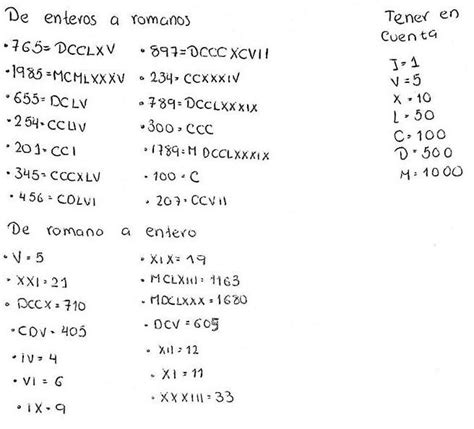 De enteros a romanos
• 765 = DCCLXV
• 1985 = MCMLXXXV
• 655 = DCLV
• 254 = CCLIV
• 201 = CCI
• 345 = CCCXLV
• 456 = CDLVI
• 897 = DCCCXCVII
• 234 = CCXXXIV
• 789 = DCCLXXXIX
• 300 = CCC
• 1789 = M DCCLXXXIX
• 100 = C
• 207 = CCVII
Tener en
Cuenta
I = 1
V = 5
X = 10
L = 50
C = 100
D = 500
M = 1000
De romano a entero
• V = 5
• XXI = 21
• DCCX = 710
• CDV = 405
• IV = 4
• VI = 6
• IX = 9
• XIX = 19
• MCLXIII = 1163
• MDCLXXX = 1680
• DCV = 605
• XII = 12
• XI = 11
• XXXIII = 33